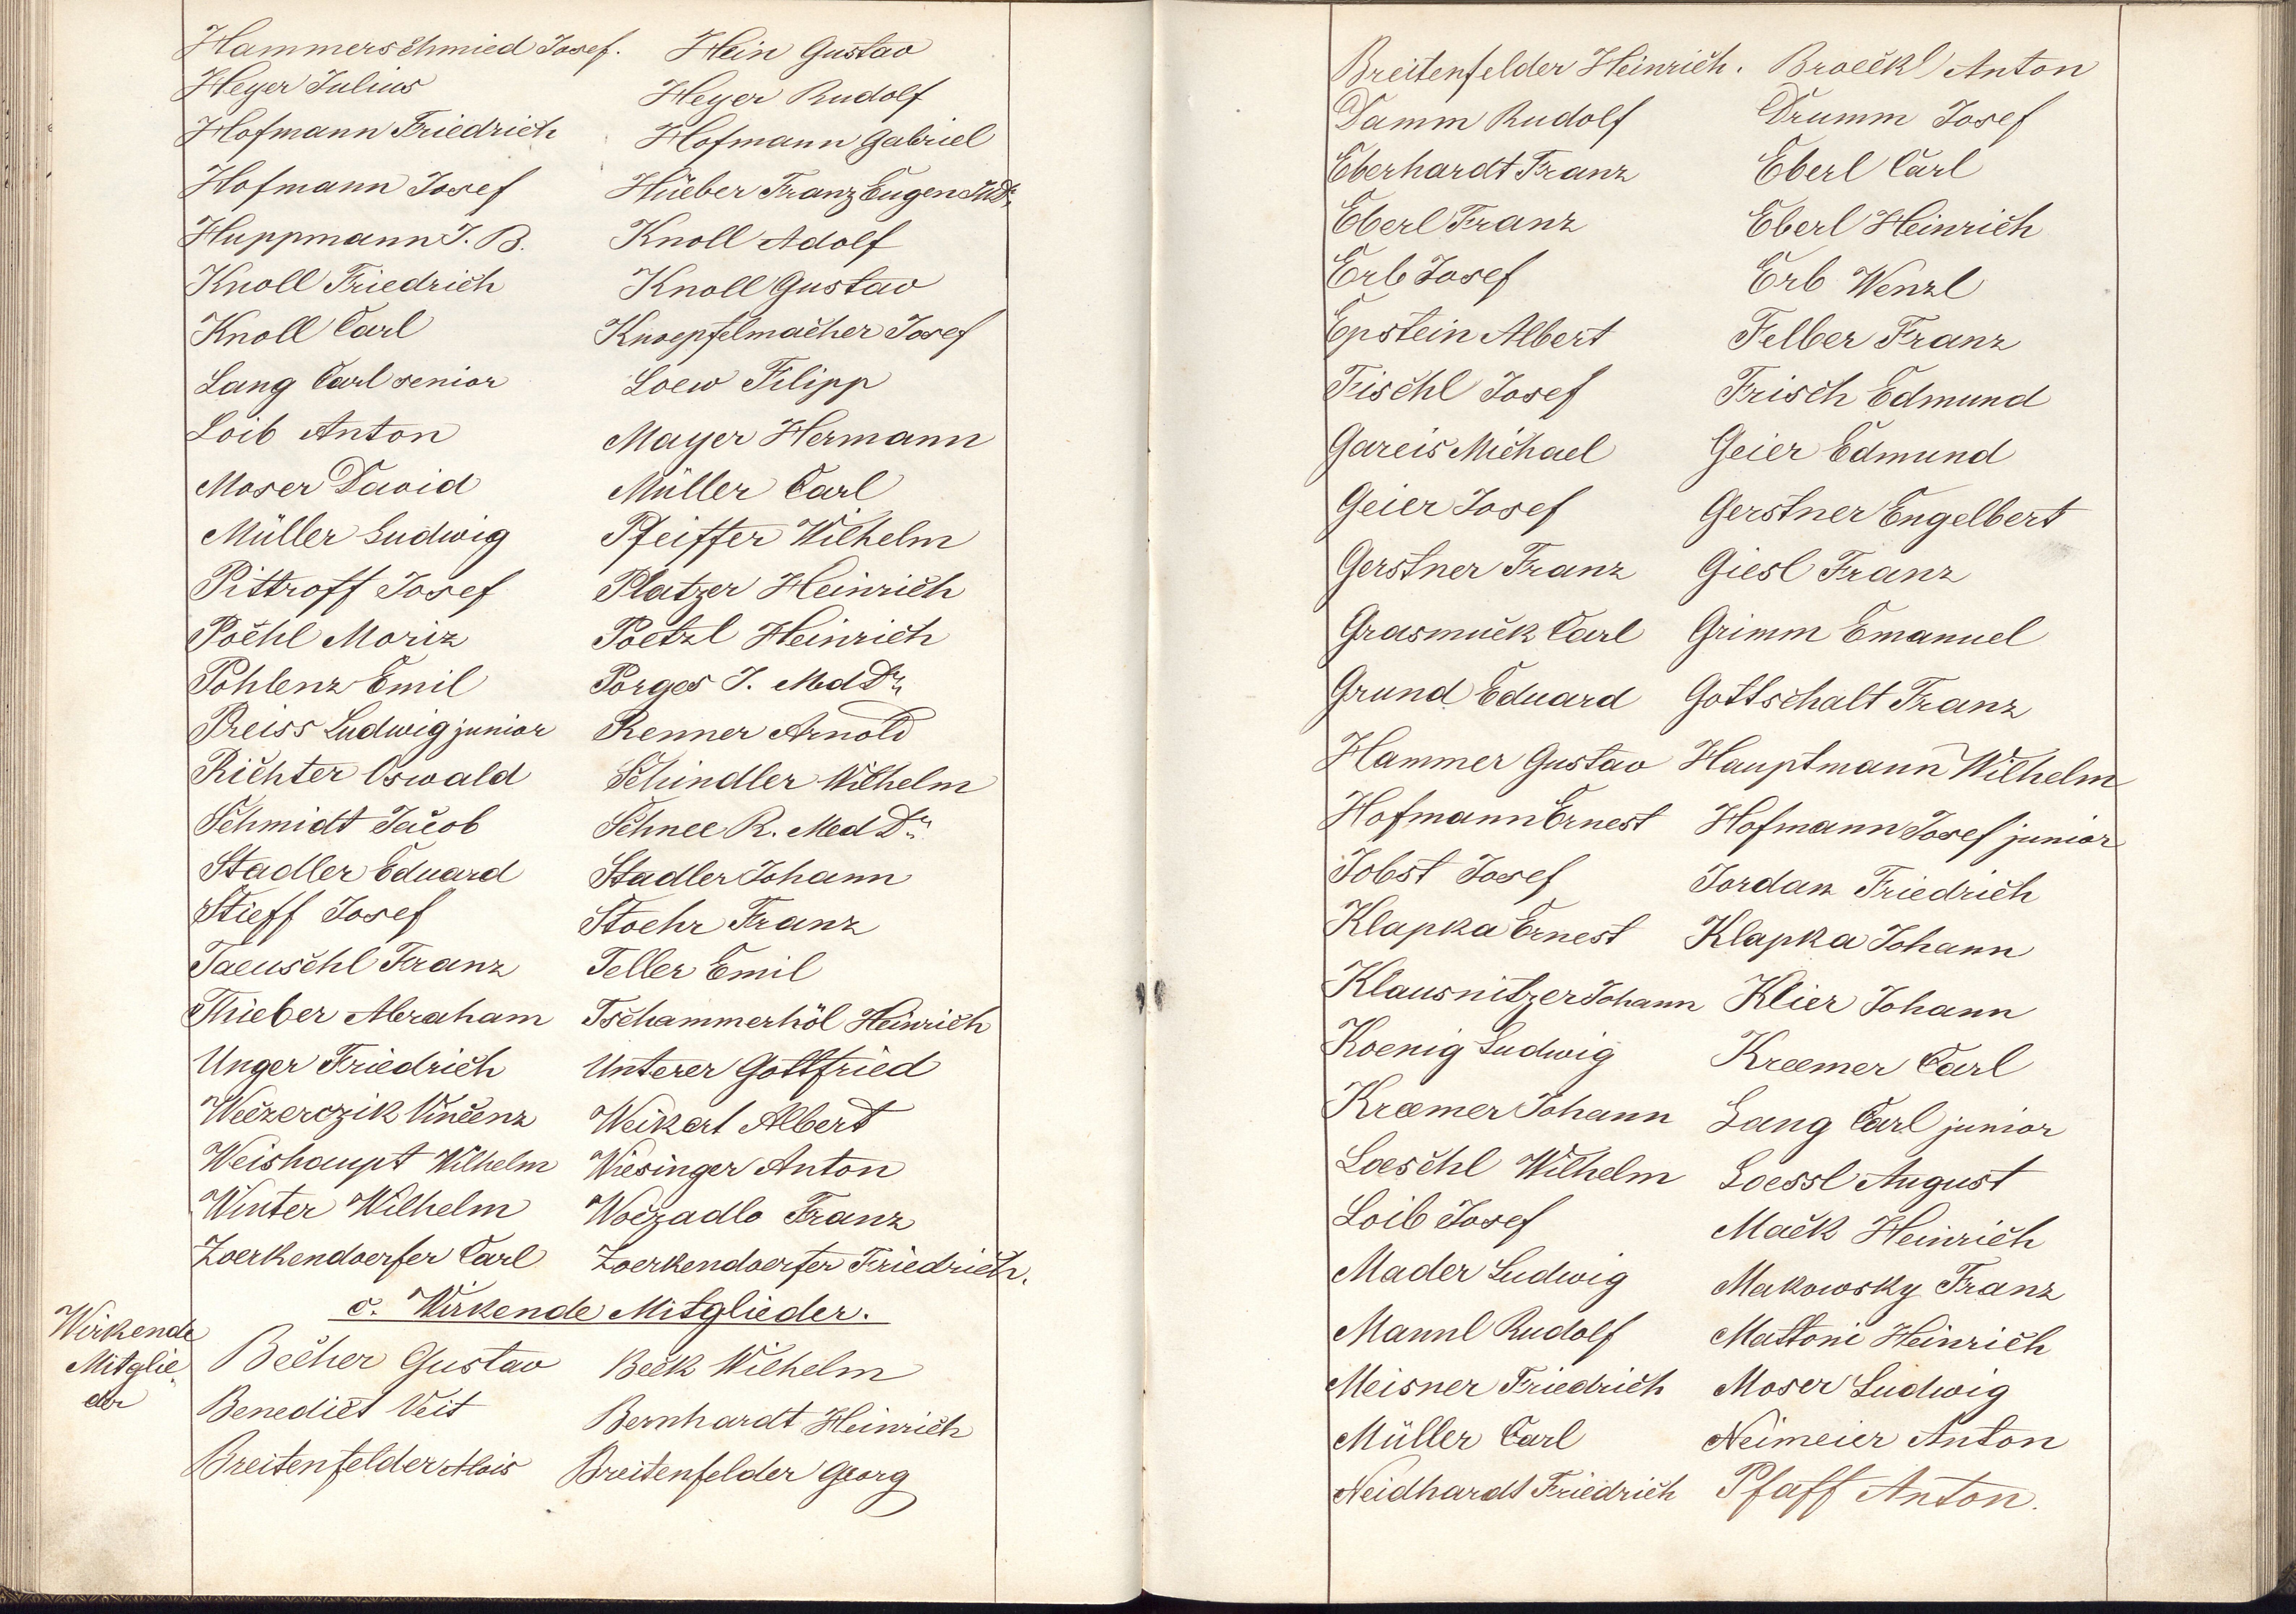 Hammerschmied Josef. Hein Gustav
Heyer Julius Heyer Rudolf
Hofmann Friedrich Hofmann Gabriel
Hofmann Josef Hüeber Franz Eugen MDr.
Huppmann J. B. Knoll Adolf
Knoll Friedrich Knoll Gustav
Knoll Carl Knoepfelmacher Josef
Lang Carl senior Loew Filipp
Loib Anton Mayer Hermann
Moser David Müller Carl
Müller Ludwig Pfeiffer Wilhelm
Pittroff Josef Platzer Heinrich
Pöchl Moriz Poetzl Heinrich
Pohlenz Emil Porges J. Med Dr.
Preiss Ludwig junior Renner Arnold
Richter Oswald Schindler Wilhelm
Schmidt Jacob Schnee R. Med Dr.
Stadler Eduard Stadler Johann
Stieff Josef Stoehr Franz
Taeuschl Franz Teller Emil
Thieber Abraham Tschammerhöl Heinrich
Unger Friedrich Unterer Gottfried
Weczerczik Vincenz Weikert Albert
Weishaupt Wilhelm Wiesinger Anton
Winter Wilhelm Woczadlo Franz
Zoerkendoerfer Carl Zoerkendoerfer Friedrich.
c. Wirkende Mitglieder.
Wirkende
Mitglie-
der
Becher Gustav Beck Wilhelm
Benedict Veit Bernhardt Heinrich
Breitenfelder Alois Breitenfelder Georg
Breitenfelder Heinrich. Broeckl Anton
Damm Rudolf Drumm Josef
Eberhardt Franz Eberl Carl
Eberl Franz Eberl Heinrich
Erb Josef Erb Wenzl
Epstein Albert Felber Franz
Fischl Josef Frisch Edmund
Gareis Michael Geier Edmund
Geier Josef Gerstner Engelbert
Gerstner Franz Giesl Franz
Grasmuck Carl Grimm Emanuel
Grund Eduard Gottschalt Franz
Hammer Gustav Hauptmann Wilhelm
Hofmann Ernest Hofmann Josef junior
Jobst Josef Jordan Friedrich
Klapka Ernest Klapka Johann
Klausnitzer Johann Klier Johann
Koenig Ludwig Kraemer Carl
Kraemer Johann Lang Carl junior
Loeschl Wilhelm Loessl August
Loib Josef Mack Heinrich
Mader Ludwig Makowsky Franz
Mannl Rudolf Mattoni Heinrich
Meisner Friedrich Moser Ludwig
Müller Carl Neimeier Anton
Neidhardt Friedrich Pfaff Anton.